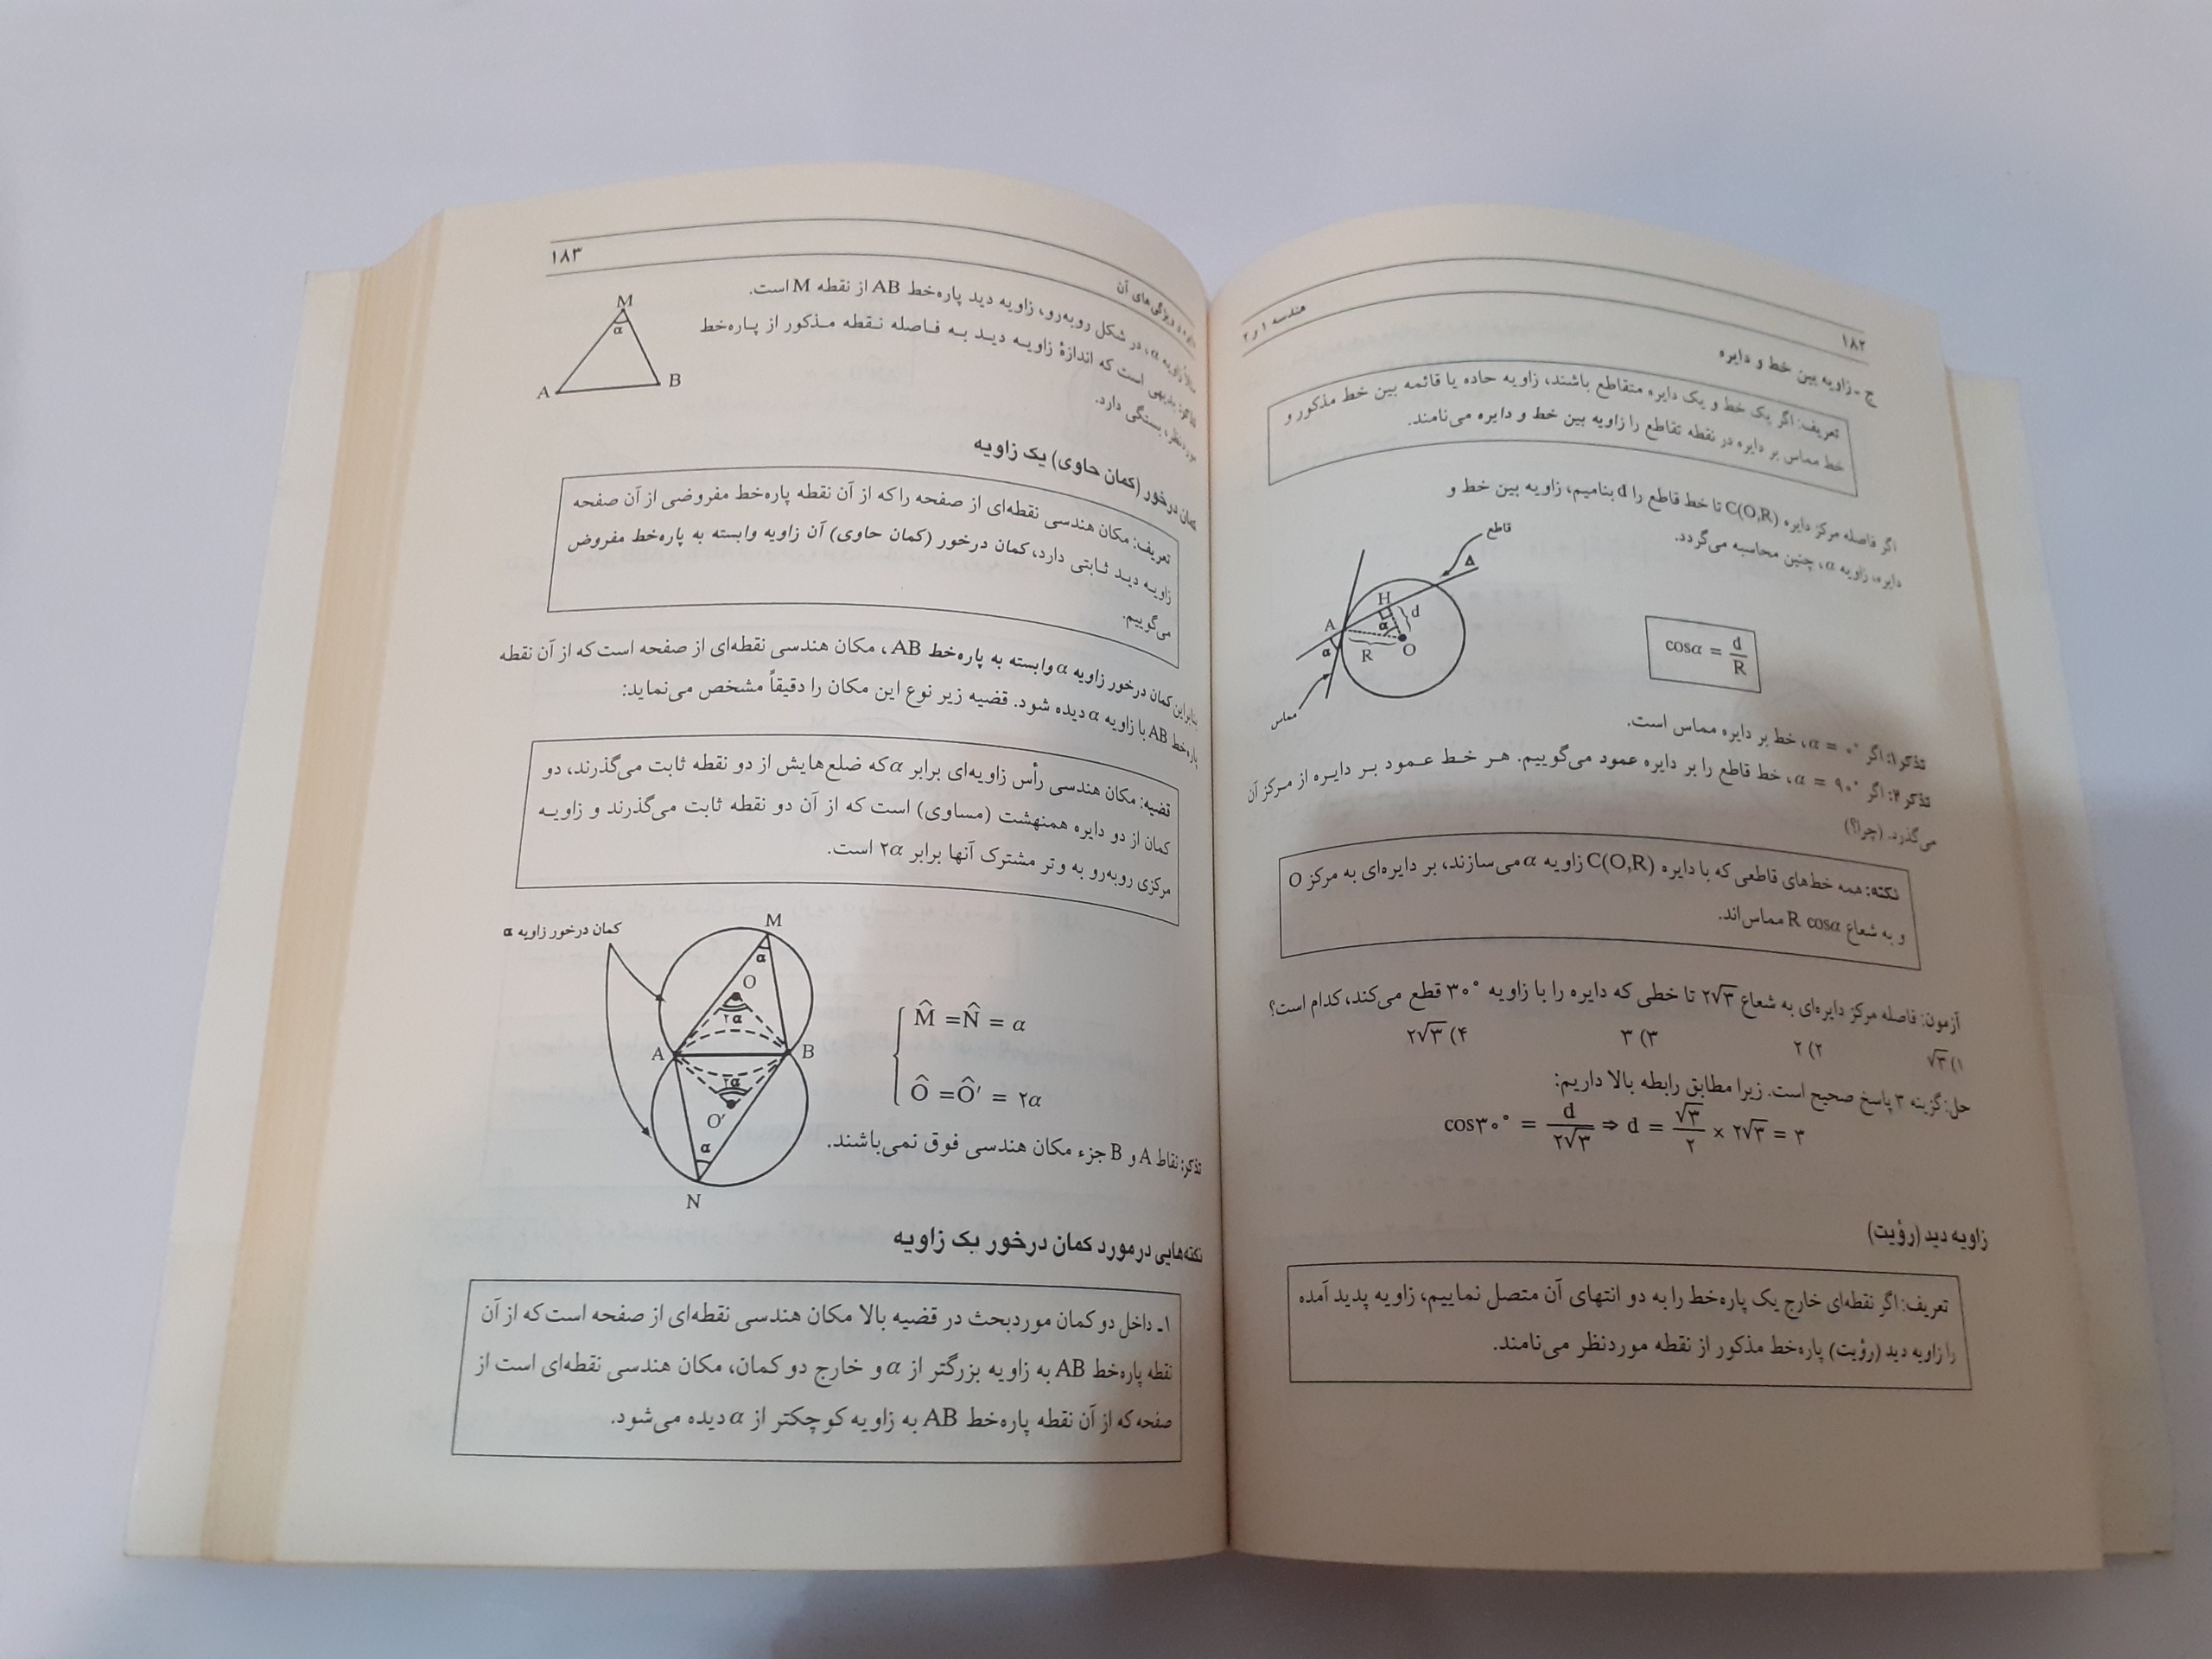 ۱۸۲
هندسه ۱ و ۲
ج ـ زاویه بین خط و دایره
تعریف: اگر یک خط و یک دایره متقاطع باشند، زاویه حاده یا قائمه بین خط مذکور و
خط مماس بر دایره در نقطه تقاطع را زاویه بین خط و دایره می‌نامند.
اگر فاصله مرکز دایره C(O,R) تا خط قاطع را d بنامیم، زاویه بین خط و
دایره، زاویه α، چنین محاسبه می‌گردد.
cosα = d/R
قاطع
Δ
H
d
A
α
α
R
O
مماس
تذکر ۱: اگر α = ۰°، خط بر دایره مماس است.
تذکر ۲: اگر α = ۹۰°، خط قاطع را بر دایره عمود می‌گوییم. هر خط عمود بر دایره از مرکز آن
می‌گذرد. (چرا؟)
نکته: همه خط‌های قاطعی که با دایره C(O,R) زاویه α می‌سازند، بر دایره‌ای به مرکز O
و به شعاع R cosα مماس‌اند.
آزمون: فاصله مرکز دایره‌ای به شعاع ۲√۳ تا خطی که دایره را با زاویه ۳۰° قطع می‌کند، کدام است؟
۱) √۳ ۲) ۲ ۳) ۳ ۴) ۲√۳
حل: گزینه ۳ پاسخ صحیح است. زیرا مطابق رابطه بالا داریم:
cos۳۰° = d/۲√۳ ⇒ d = √۳/۲ × ۲√۳ = ۳
زاویه دید (رؤیت)
تعریف: اگر نقطه‌ای خارج یک پاره‌خط را به دو انتهای آن متصل نماییم، زاویه پدید آمده
را زاویه دید (رؤیت) پاره‌خط مذکور از نقطه موردنظر می‌نامند.
۱۸۳
و ویژگی‌های آن
زاویه α، در شکل روبه‌رو، زاویه دید پاره‌خط AB از نقطه M است.
بدیهی است که اندازهٔ زاویه دید به فاصله نقطه مذکور از پاره‌خط
موردنظر، بستگی دارد.
M
α
A
B
کمان درخور (کمان حاوی) یک زاویه
تعریف: مکان هندسی نقطه‌ای از صفحه را که از آن نقطه پاره‌خط مفروضی از آن صفحه
زاویه دید ثابتی دارد، کمان درخور (کمان حاوی) آن زاویه وابسته به پاره‌خط مفروض
می‌گوییم.
بنابراین کمان درخور زاویه α وابسته به پاره‌خط AB، مکان هندسی نقطه‌ای از صفحه است که از آن نقطه
پاره‌خط AB با زاویه α دیده شود. قضیه زیر نوع این مکان را دقیقاً مشخص می‌نماید:
قضیه: مکان هندسی رأس زاویه‌ای برابر α که ضلع‌هایش از دو نقطه ثابت می‌گذرند، دو
کمان از دو دایره همنهشت (مساوی) است که از آن دو نقطه ثابت می‌گذرند و زاویه
مرکزی روبه‌رو به وتر مشترک آنها برابر ۲α است.
کمان درخور زاویه α
M
α
O
۲α
A
B
۲α
O′
α
N
M̂ = N̂ = α
Ô = Ô′ = ۲α
تذکر: نقاط A و B جزء مکان هندسی فوق نمی‌باشند.
نکته‌هایی درمورد کمان درخور یک زاویه
۱ـ داخل دو کمان موردبحث در قضیه بالا مکان هندسی نقطه‌ای از صفحه است که از آن
نقطه پاره‌خط AB به زاویه بزرگتر از α و خارج دو کمان، مکان هندسی نقطه‌ای است از
صفحه که از آن نقطه پاره‌خط AB به زاویه کوچکتر از α دیده می‌شود.